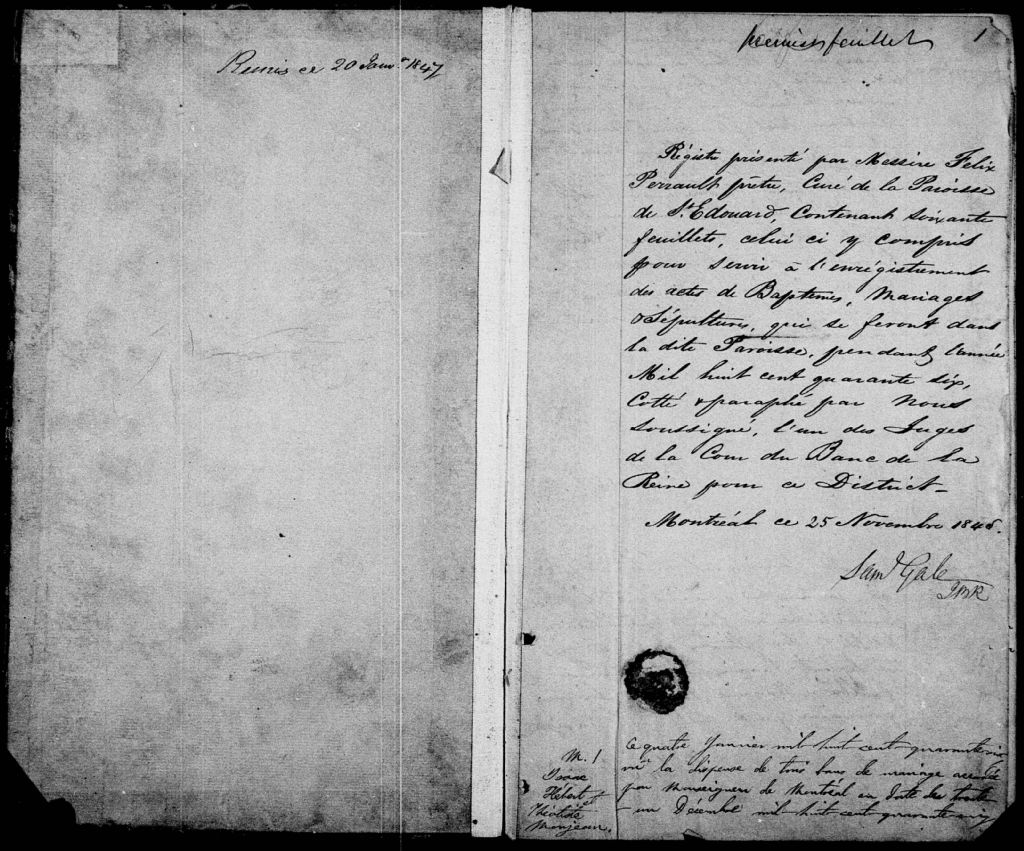 Remis ce 20 Janv. 1847
premier feuillet 1
Régistre présenté par Messire Felix
Perrault prêtre, Curé de la Paroisse
de St Edouard, Contenant soixante
feuillets, celui ci y compris
pour servir à l'enrégistrement
des actes de Baptêmes, Mariages
& Sépultures, qui se feront dans
la dite Paroisse, pendant l'année
Mil huit cent quarante six,
Cotté & paraphé par Nous
soussigné, l'un des Juges
de la Cour du Banc de la
Reine pour ce District_
Montréal ce 25 Novembre
Saml Gale
JBR
M. 1
Isaac
Hébert et
Monjean.
Ce quatre Janvier mil huit cent quarante six
vû la dispense de tous bans de mariage accordée
par Monseigneur de Montréal en date du trente
un Décembre mil huit cent quarante cinq